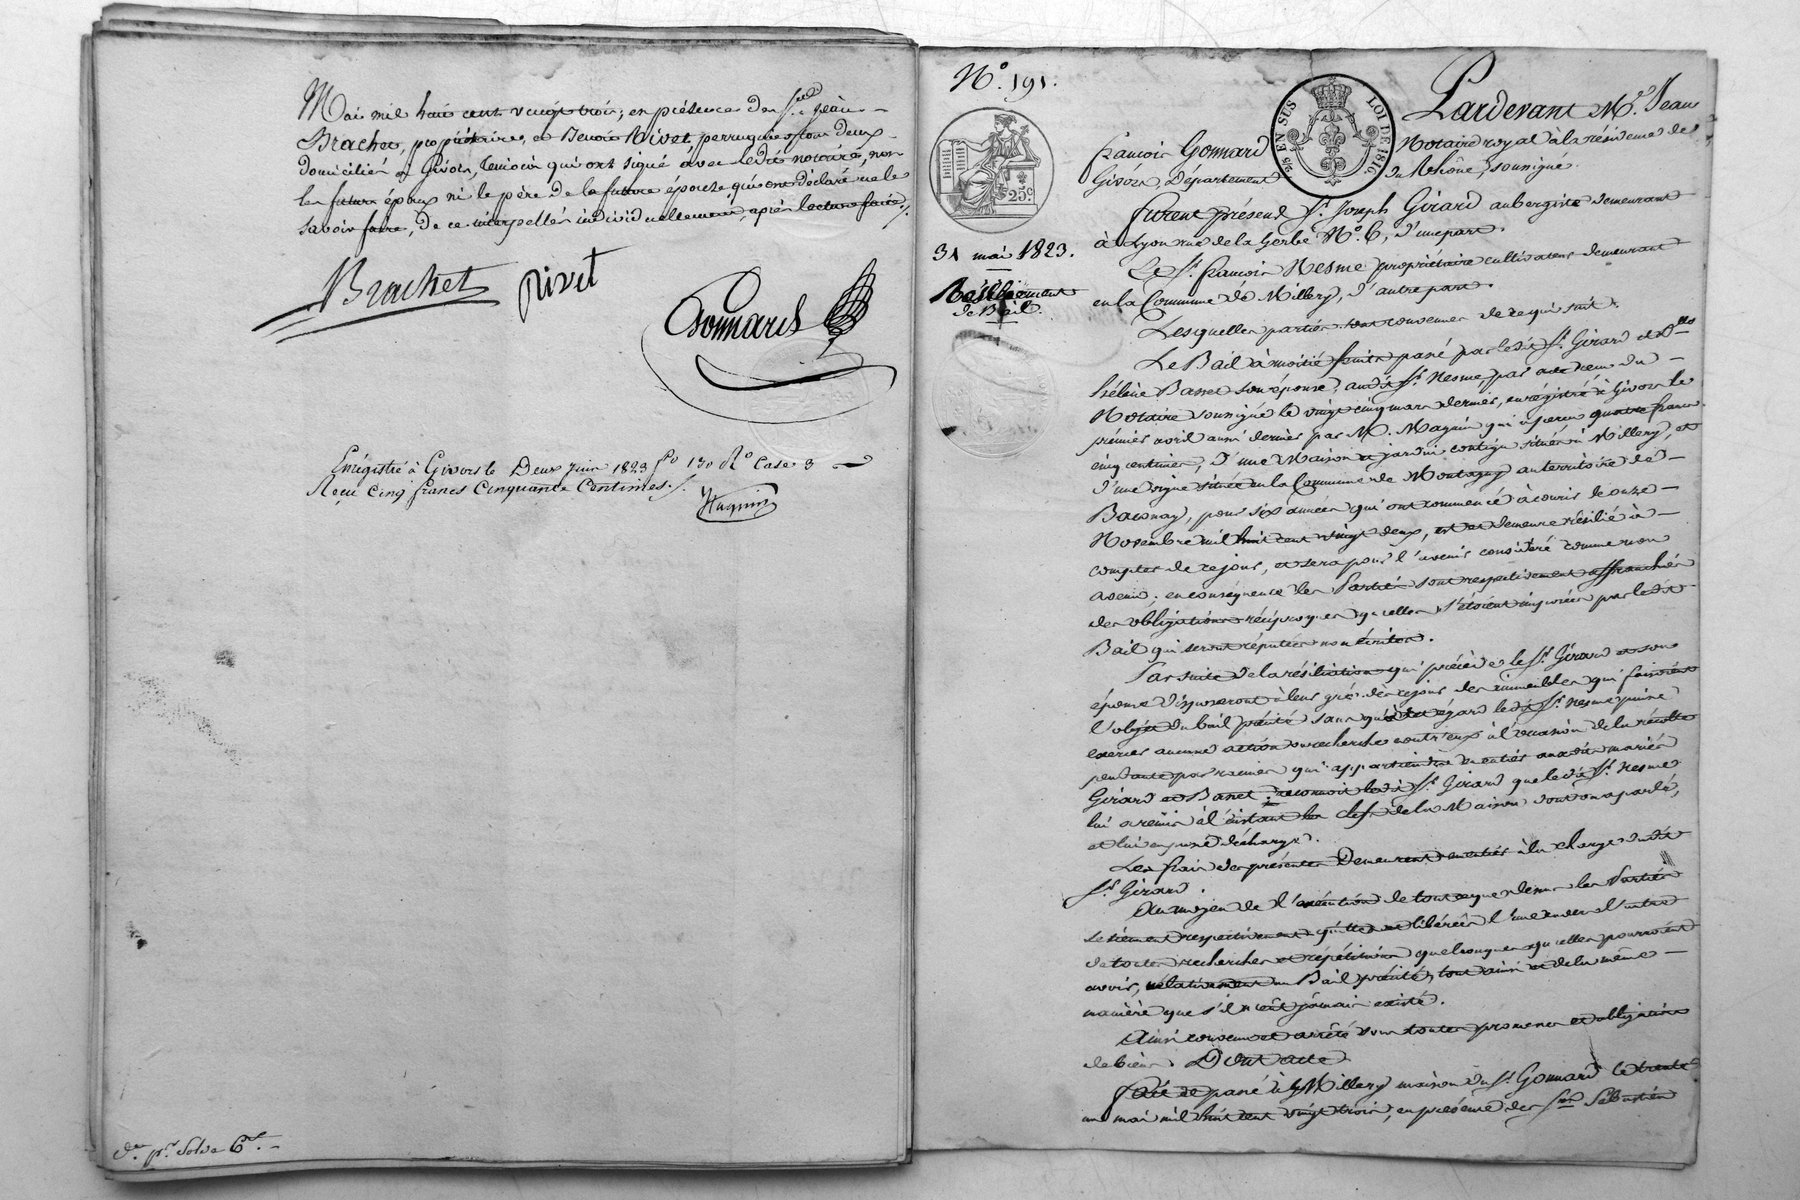 Mai mil huit cent vingt trois, en présence des Srs. Jean
Brachet, propriétaire, et Benoit Rivet, perruquier, tous deux
domiciliés à Givors, temoins qui ont signé avec ledit notaire, non
les futurs époux ni le père de la future épouse qui ont déclaré ne le
savoir faire, de ce interpellés individuellement après lecture faite ./.
Brachet Rivet
Gonnard
Enrégistré à Givors le Deux Juin 1823 fo. 130 Ro. Case 3
Reçu Cinq francs Cinquante Centimes ./.
Magnin
No. 191.
25c.
31 mai 1823.
Résiliement
de Bail.
25 EN SUS
LOI DE 1816
Pardevant Me. Jean
françois Gonnard Notaire royal à la résidence de
Givors, Département du Rhône, soussigné.
furent présens Sr. Joseph Girard aubergiste demeurant
à Lyon rue de la Gerbe No. 6, d'une part.
Le Sr. françois Nesme propriétaire cultivateur demeurant
en la Commune de Millery, d'autre part.
Lesquelles parties sont convenues de ce qui suit.
Le Bail à moitié fruits passé par ledit Sr. Girard et Dlle
hélène Basset son épouse, audit Sr. Nesme, par acte reçu du
Notaire soussigné le vingt cinq mars dernier, enrégistré à Givors le
premier avril aussi dernier par M. Magnin qui a perçu quatre francs
cinq centimes, d'une Maison et jardin contigu situés à Millery, et
d'une vigne située en la Commune de Montagny au territoire de
Baconay, pour six années qui ont commencé à courir le onze
Novembre mil huit cent vingt deux, est et demeure résilié à
compter de ce jour, et sera pour l'avenir considéré comme non
avenu; en conséquence les Parties sont respectivement affranchies
des obligations réciproques qu'elles s'étoient imposées par ledit
Bail qui seront réputées non écrites.
Par suite de la résiliation qui précède le Sr. Girard et son
épouse disposeront à leur gré dès ce jour des immeubles qui faisoient
l'objet du bail précité sans qu'à cet égard ledit Sr. Nesme puisse
exercer aucune action ou recherche contr'eux à l'occasion de la récolte
pendante par racines qui appartiendra en entier aux dits mariés
Girard et Basset; reconnoit ledit Sr. Girard que ledit Sr. Nesme
lui a remis à l'instant les clefs de la Maison dont on a parlé,
et lui en passe décharge.
Les frais des présentes Demeurent en entier à la charge dudit
Sr. Girard.
Au moyen de l'exécution de tout ce que dessus les Parties
se tiennent respectivement quittes et libérées l'une envers l'autre
de toutes recherches et répétitions quelconques qu'elles pourroient
avoir, relativement au Bail précité, tout ainsi et de la même
manière que s'il n'eût jamais existé.
Ainsi convenu et arrêté sous toutes promesses et obligations
de biens. Dont acte
fait et passé à Millery maison du Sr. Gonnard le trente
un mai mil huit cent vingt trois, en présence des Srs. Sébastien